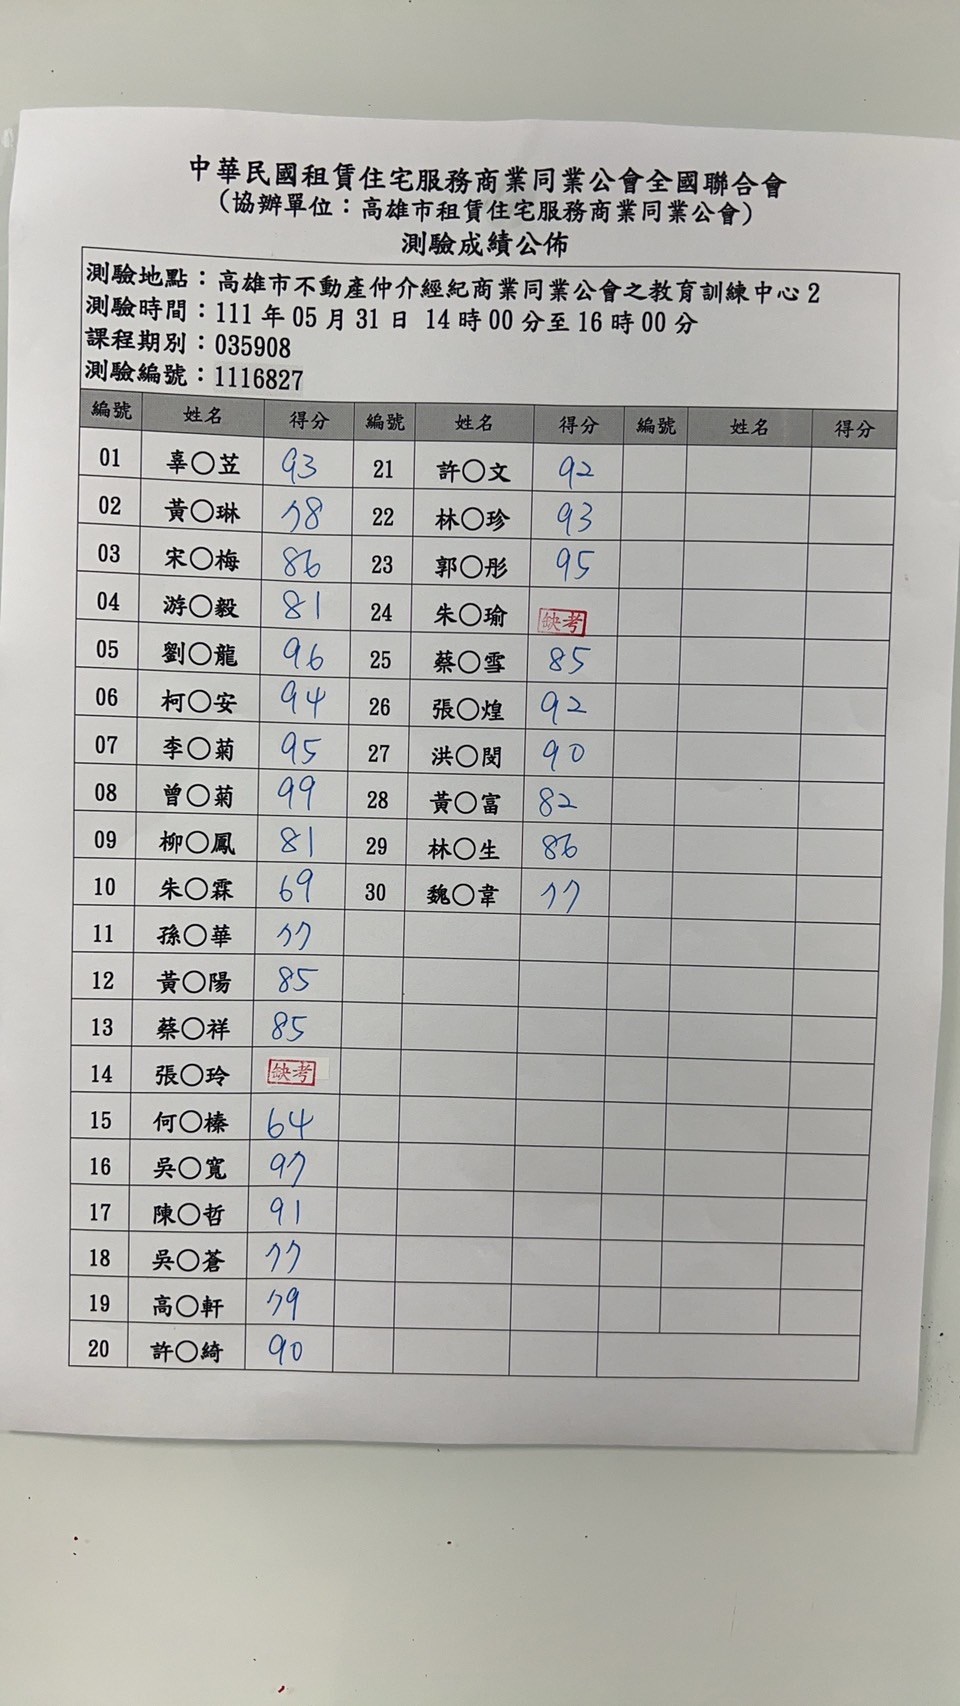 中華民國租賃住宅服務商業同業公會全國聯合會
（協辦單位：高雄市租賃住宅服務商業同業公會）
測驗成績公佈
測驗地點：高雄市不動產仲介經紀商業同業公會之教育訓練中心2
測驗時間：111 年 05 月 31 日 14 時 00 分至 16 時 00 分
課程期別：035908
測驗編號：1116827
編號 姓名 得分 編號 姓名 得分 編號 姓名 得分
01 辜〇笠 93 21 許〇文 92
02 黃〇琳 78 22 林〇珍 93
03 宋〇梅 86 23 郭〇彤 95
04 游〇毅 81 24 朱〇瑜 缺考
05 劉〇龍 96 25 蔡〇雪 85
06 柯〇安 94 26 張〇煌 92
07 李〇菊 95 27 洪〇閔 90
08 曾〇菊 99 28 黃〇富 82
09 柳〇鳳 81 29 林〇生 86
10 朱〇霖 69 30 魏〇韋 77
11 孫〇華 77
12 黃〇陽 85
13 蔡〇祥 85
14 張〇玲 缺考
15 何〇榛 64
16 吳〇寬 97
17 陳〇哲 91
18 吳〇蒼 77
19 高〇軒 79
20 許〇綺 90